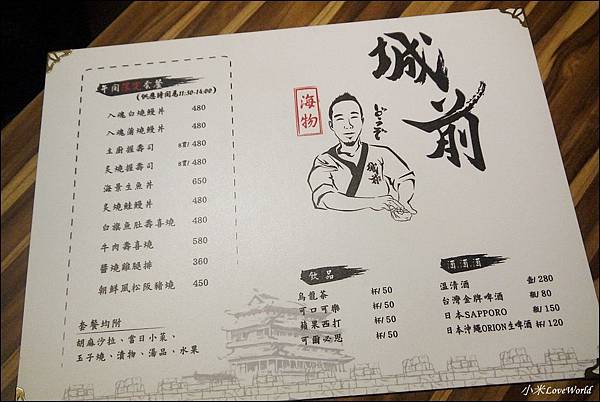 城前
海物
城前
午間限定套餐
(供應時間為11:30-14:00)
入魂白燒鰻丼 480
入魂蒲燒鰻丼 480
主廚握壽司 8貫/ 480
炙燒握壽司 8貫/ 480
海景生魚丼 650
炙燒鮭鰻丼 480
白旗魚肚壽喜燒 480
牛肉壽喜燒 580
醬燒雞腿排 360
朝鮮風松阪豬燒 450
套餐均附
胡麻沙拉、當日小菜、
玉子燒、漬物、湯品、水果
飲品
烏龍茶 杯/ 50
可口可樂 杯/ 50
蘋果西打 杯/ 50
可爾必思 杯/ 50
酒酒酒
溫清酒 壺/ 280
台灣金牌啤酒 瓶/ 80
日本SAPPORO 瓶/ 150
日本沖繩ORION生啤酒 杯/ 120
小米LoveWorld